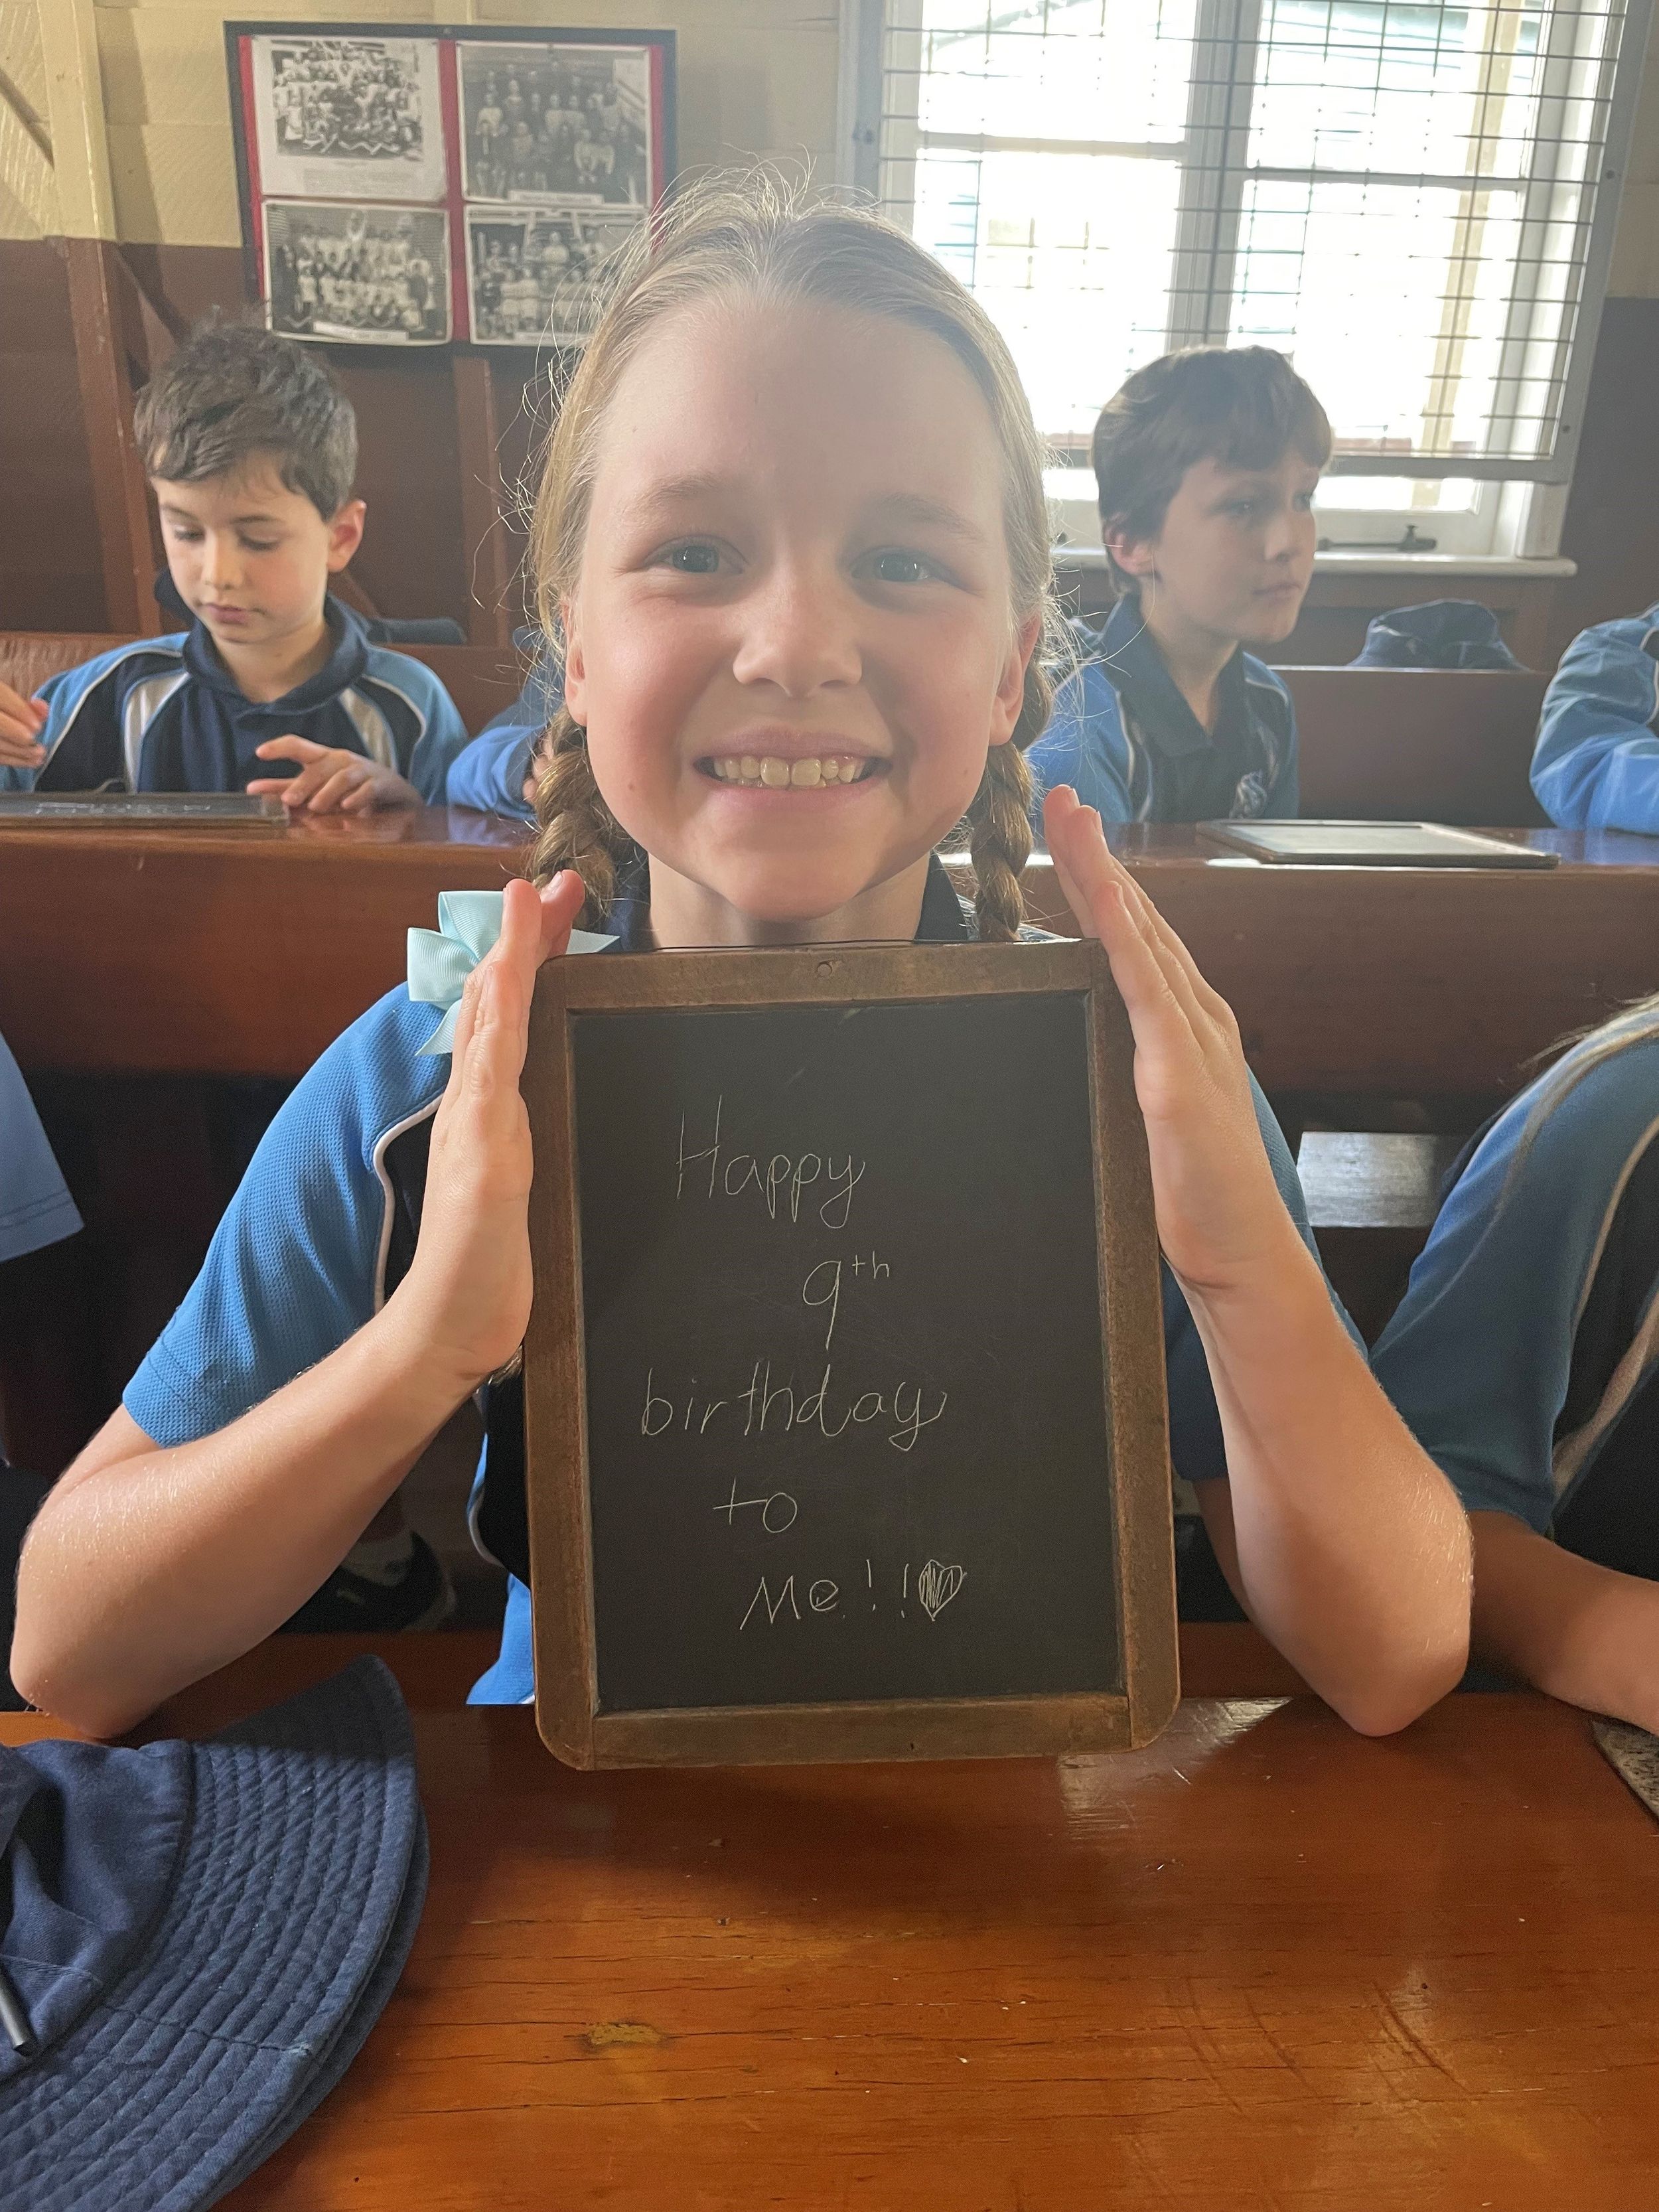 Happy
9th
birthday
to
Me!!♥